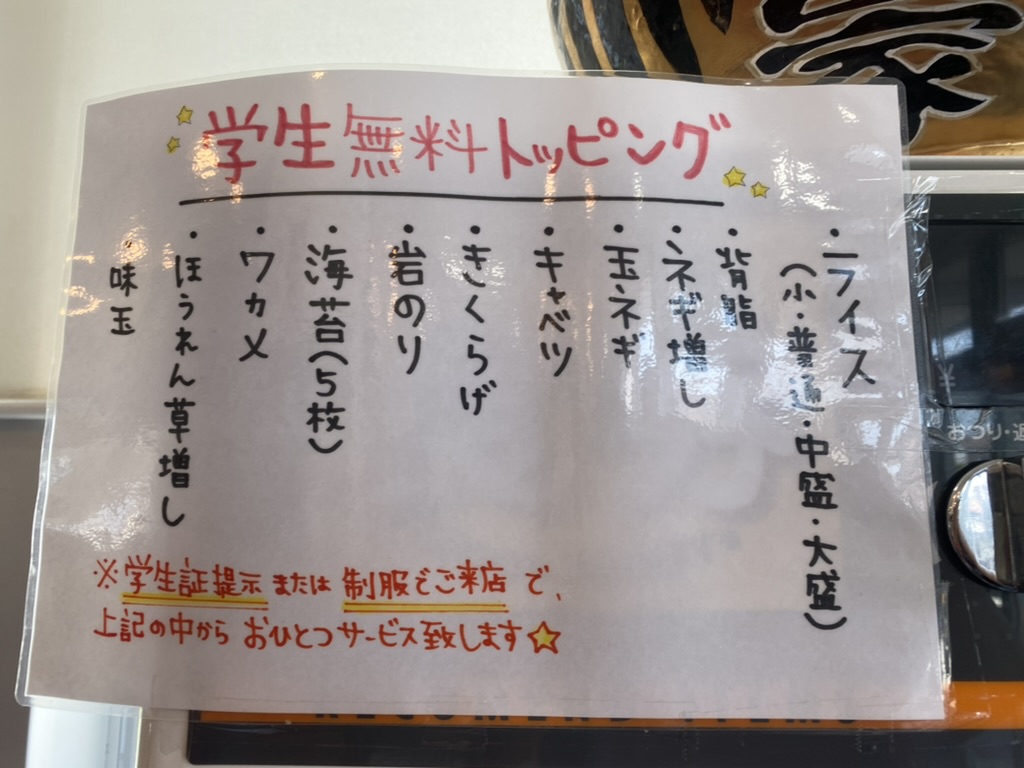 学生無料トッピング
・ライス
(小・普通・中盛・大盛)
・背脂
・ネギ増し
・玉ネギ
・キャベツ
・きくらげ
・岩のり
・海苔(5枚)
・ワカメ
・ほうれん草増し
・味玉
※学生証提示または制服でご来店で、
上記の中からおひとつサービス致します☆
¥
おつり・返